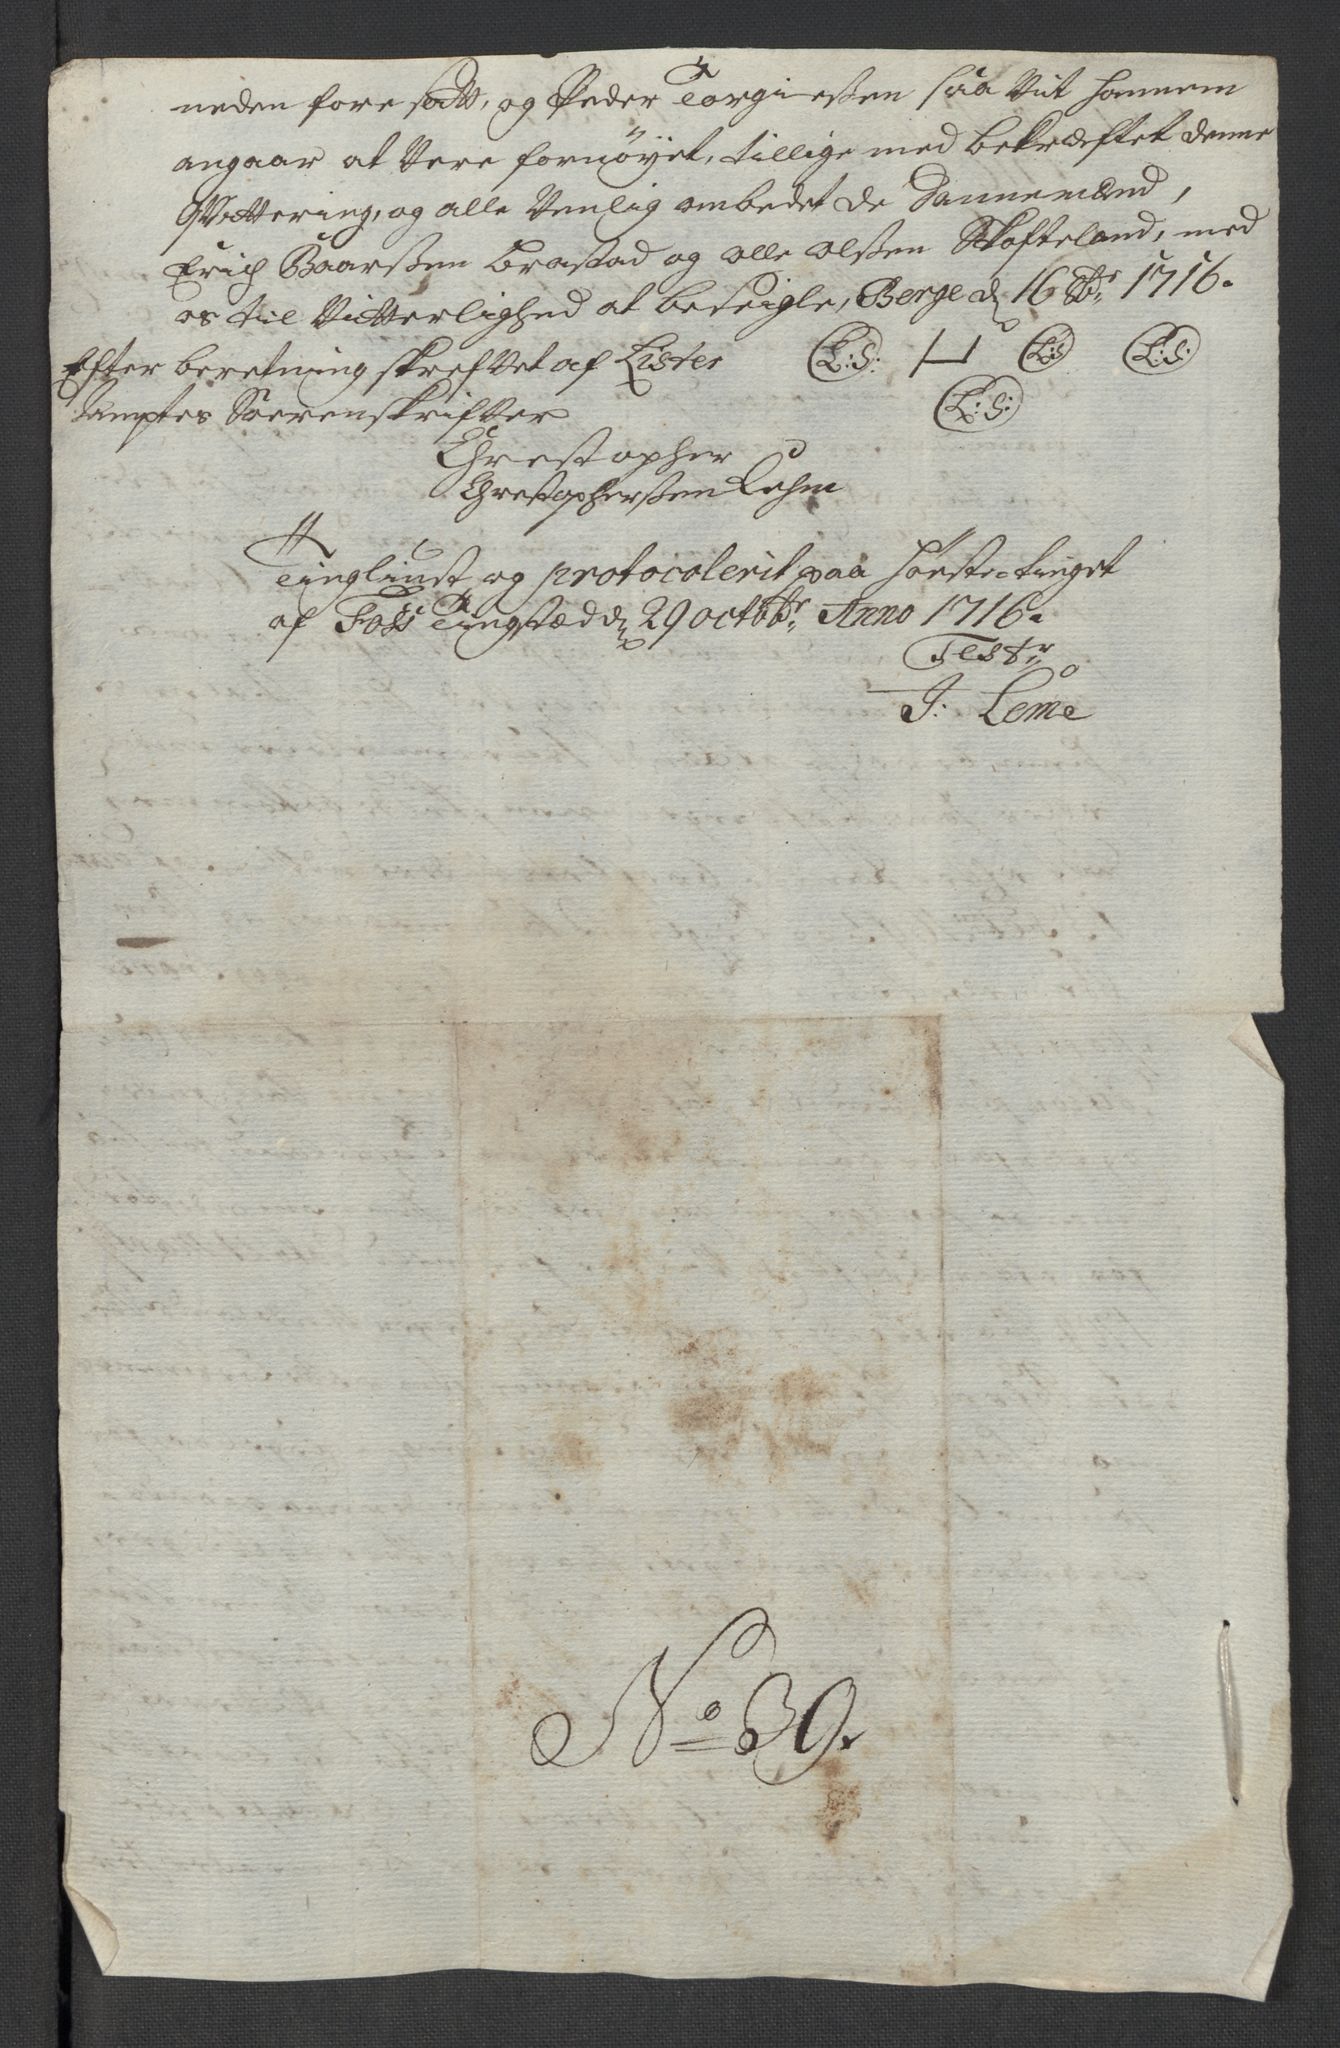 neden fore satt, og Peder Torgierßen saa Vit hannem
angaar at Vere fornöyet, tillige med bekræftet denne
Qvittering, og alle Venlig ombedet de Dannemænd,
Erich Baarßen Brastad og olle olßen Skofteland, med
os til Vitterlighed at beseigle, Berge d 16 8br 1716.
Efter beretning skreftet af Lister (L:S:) (L:S) (L:S:)
Lamptes Soerenskrifter (L:S:)
Chrestopher
Chrestopherßen Lehm
Tingliust og protocolerit paa höste-tinget
af Foss Tingstæd d 29 octobr Anno 1716.
Testr
J: Leme
No 39.